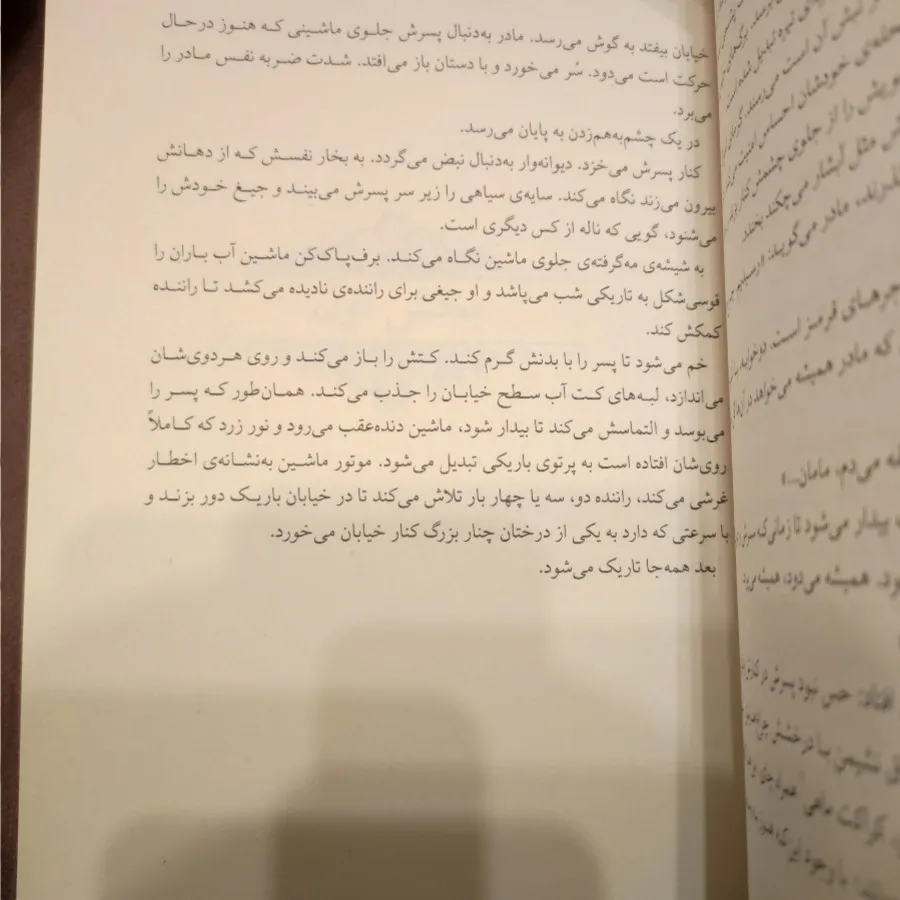 خیابان بیفتد به گوش می‌رسد. مادر به‌دنبال پسرش جلوی ماشینی که هنوز در حال
حرکت است می‌دود. سُر می‌خورد و با دستان باز می‌افتد. شدت ضربه نفس مادر را
می‌برد.
در یک چشم‌به‌هم‌زدن به پایان می‌رسد.
کنار پسرش می‌خزد. دیوانه‌وار به‌دنبال نبض می‌گردد. به بخار نفسش که از دهانش
بیرون می‌زند نگاه می‌کند. سایه‌ی سیاهی را زیر سر پسرش می‌بیند و جیغ خودش را
می‌شنود، گویی که ناله از کس دیگری است.
به شیشه‌ی مه‌گرفته‌ی جلوی ماشین نگاه می‌کند. برف‌پاک‌کن ماشین آب باران را
قوسی‌شکل به تاریکی شب می‌پاشد و او جیغی برای راننده‌ی نادیده می‌کشد تا راننده
کمکش کند.
خم می‌شود تا پسر را با بدنش گرم کند. کتش را باز می‌کند و روی هردوی‌شان
می‌اندازد، لبه‌های کت آب سطح خیابان را جذب می‌کند. همان‌طور که پسر را
می‌بوسد و التماسش می‌کند تا بیدار شود، ماشین دنده‌عقب می‌رود و نور زرد که کاملاً
روی‌شان افتاده است به پرتوی باریکی تبدیل می‌شود. موتور ماشین به‌نشانه‌ی اخطار
غرشی می‌کند، راننده دو، سه یا چهار بار تلاش می‌کند تا در خیابان باریک دور بزند و
با سرعتی که دارد به یکی از درختان چنار بزرگ کنار خیابان می‌خورد.
بعد همه‌جا تاریک می‌شود.
نبش آن است می‌رسند.
محله‌ی خودشان احساس امنیت
را از جلوی چشمش کنار
مثل آبشار می‌چکند
مادر می‌گوید:
قرمز است
که مادر همیشه می‌خواهد
می‌دم، مامان...»
بیدار می‌شود تا زمانی که
همیشه می‌دود، همیشه
پسرش در
نشیمن با درخشش